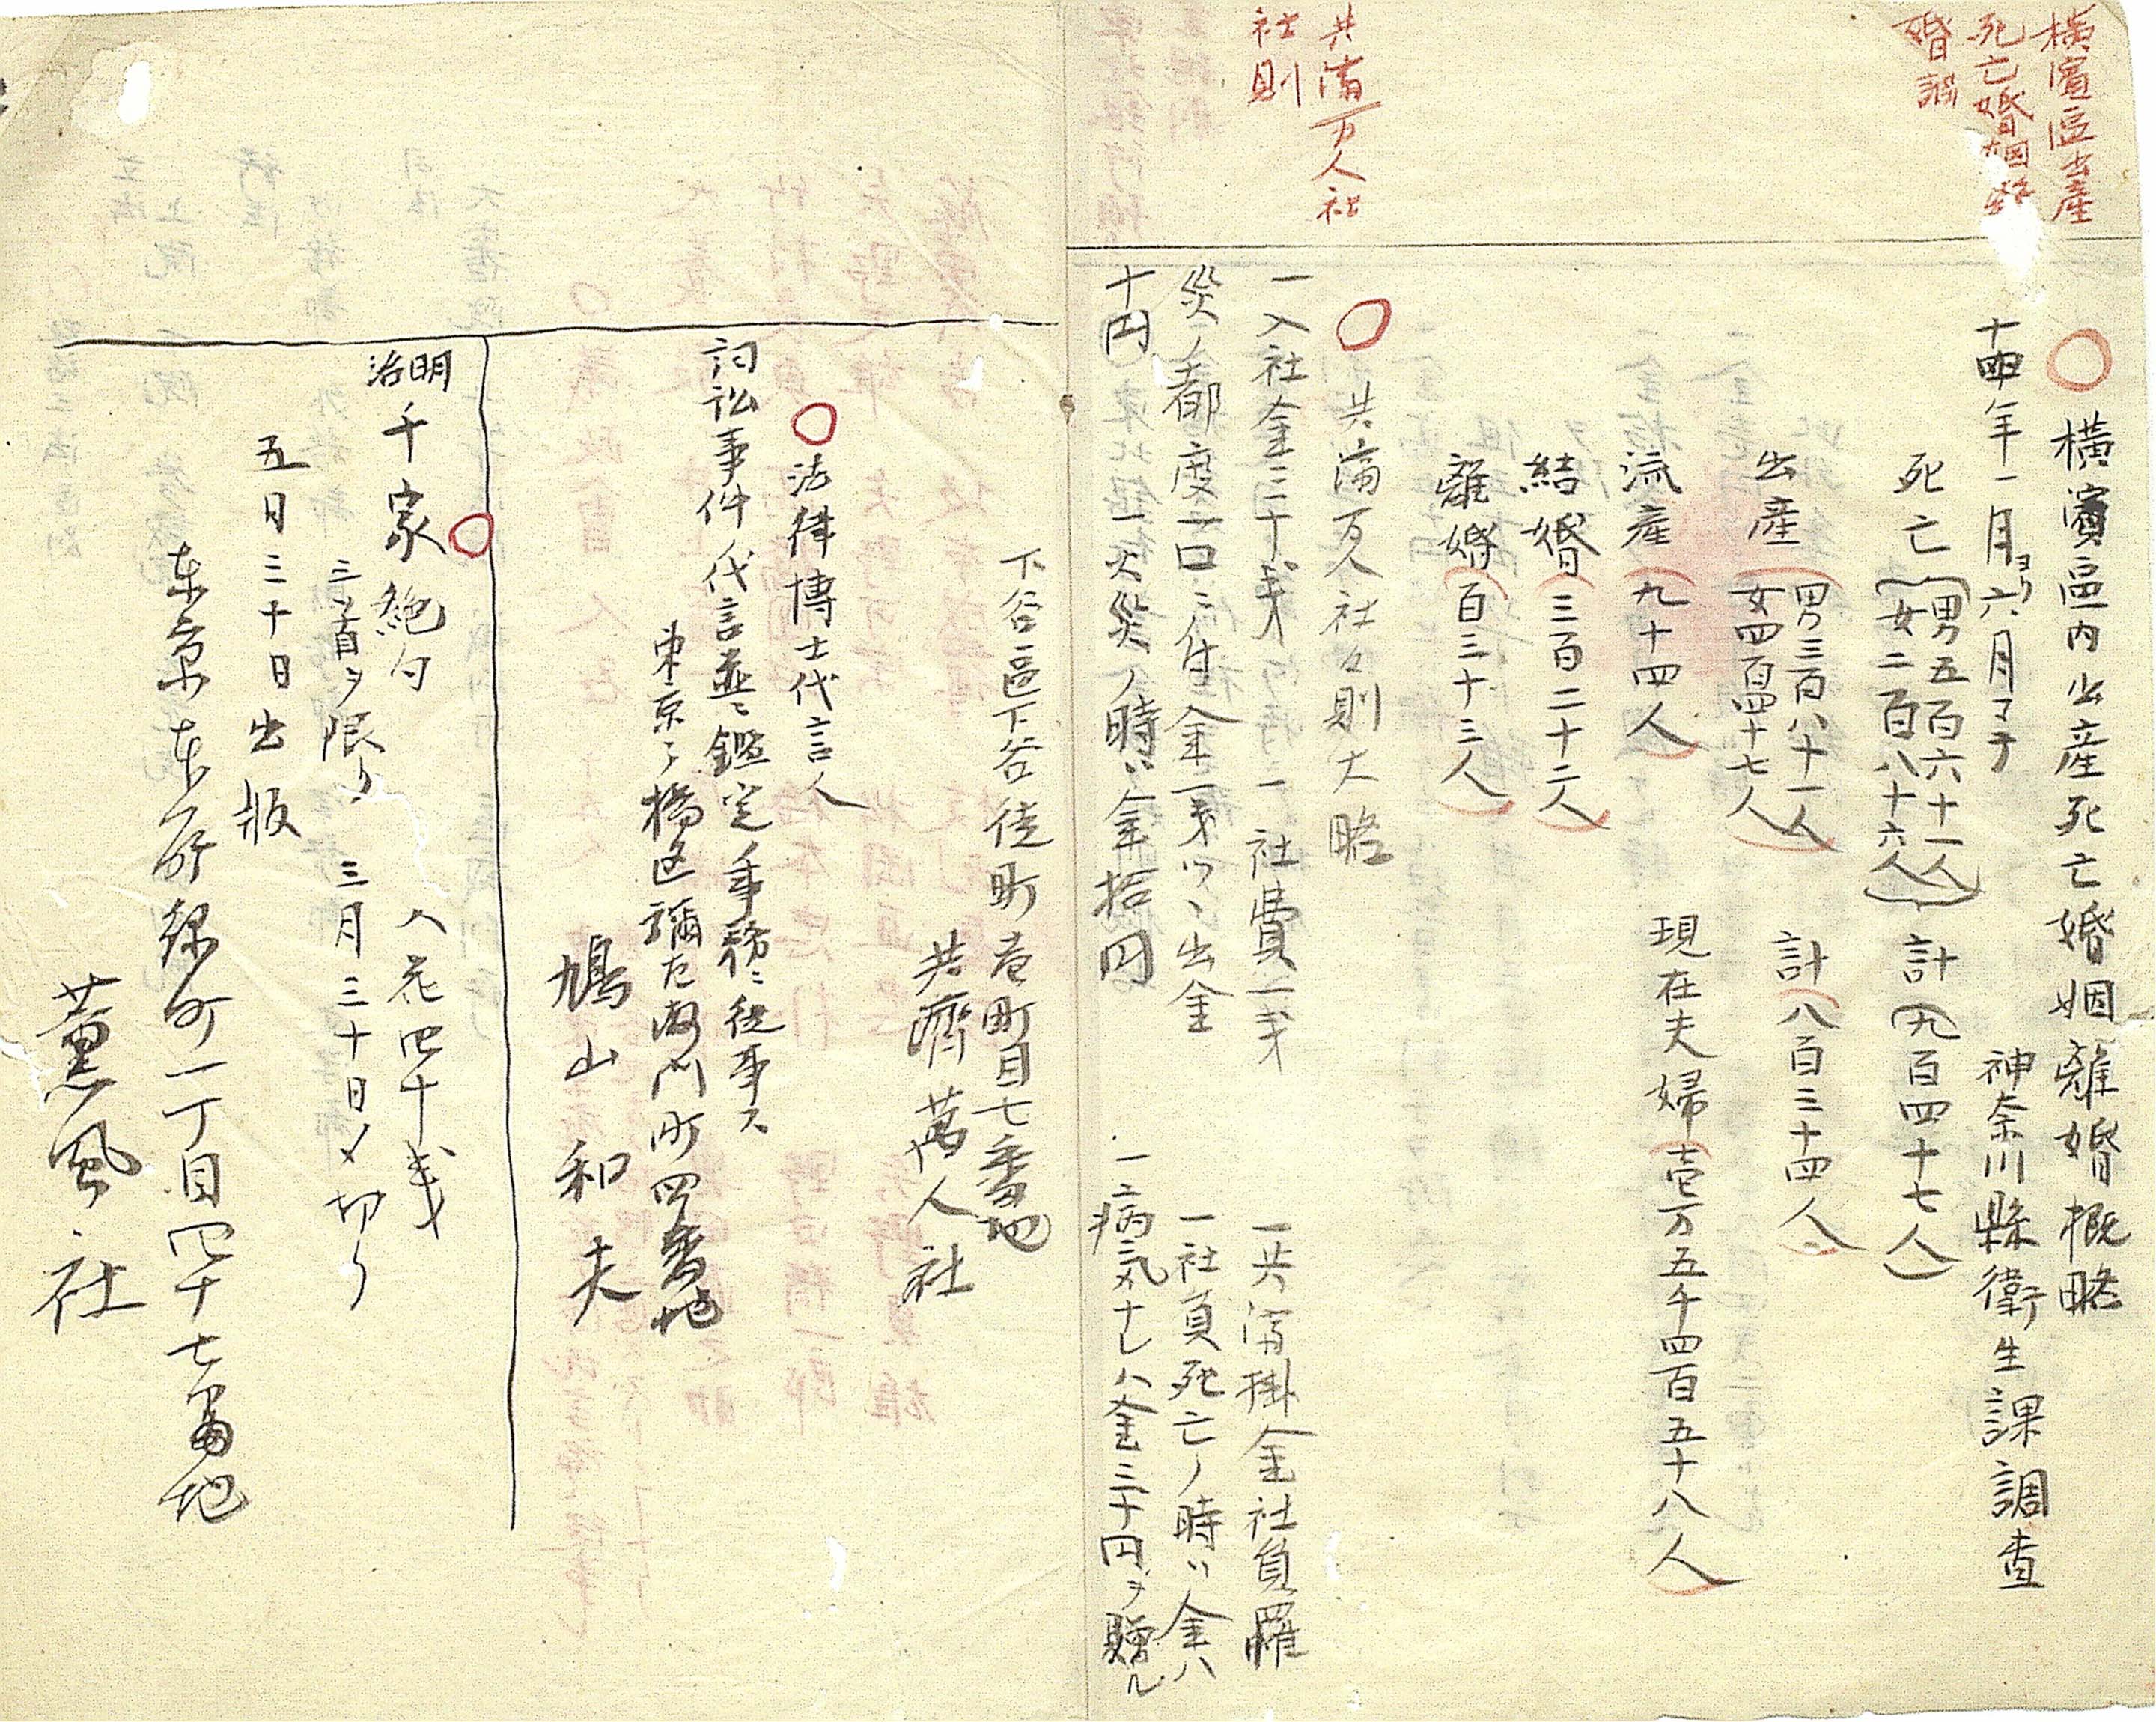 横濱區出産
死亡婚姻離
婚調
共済万人社
社則
横濱區内出産死亡婚姻離婚概略
神奈川縣衛生課調査
十四年一月ヨリ六月マテ
死亡 男五百六十一人 女二百八十六人 計九百四十七人
出産 男三百八十一人 女四百四十七人 計八百三十四人
流産 九十四人 現在夫婦壱万五千四百五十八人
結婚 三百二十二人
離婚 百三十三人
共済万人社々則大略
一入社金三十戋 一社費二戋 一共済掛金社員罹
災ノ都度一口ニ付金一戋ツヽ出金 一社員死亡ノ時ハ金八
十円 一火災ノ時ハ金拾円 一病気ナレハ金三十円ヲ贈ル
下谷區下谷徒町壱町目七番地
共濟萬人社
法律博士代言人
詞訟事件ノ代言並ニ鑑定ノ事務ニ従事ス
東京々橋区彌左衛門町四番地
鳩山和夫
明治千家絶句 入花四十戋
三首ヲ限リ 三月三十日〆切リ
五月三十日出版
東京本所緑町一丁目四十七番地
薫風社